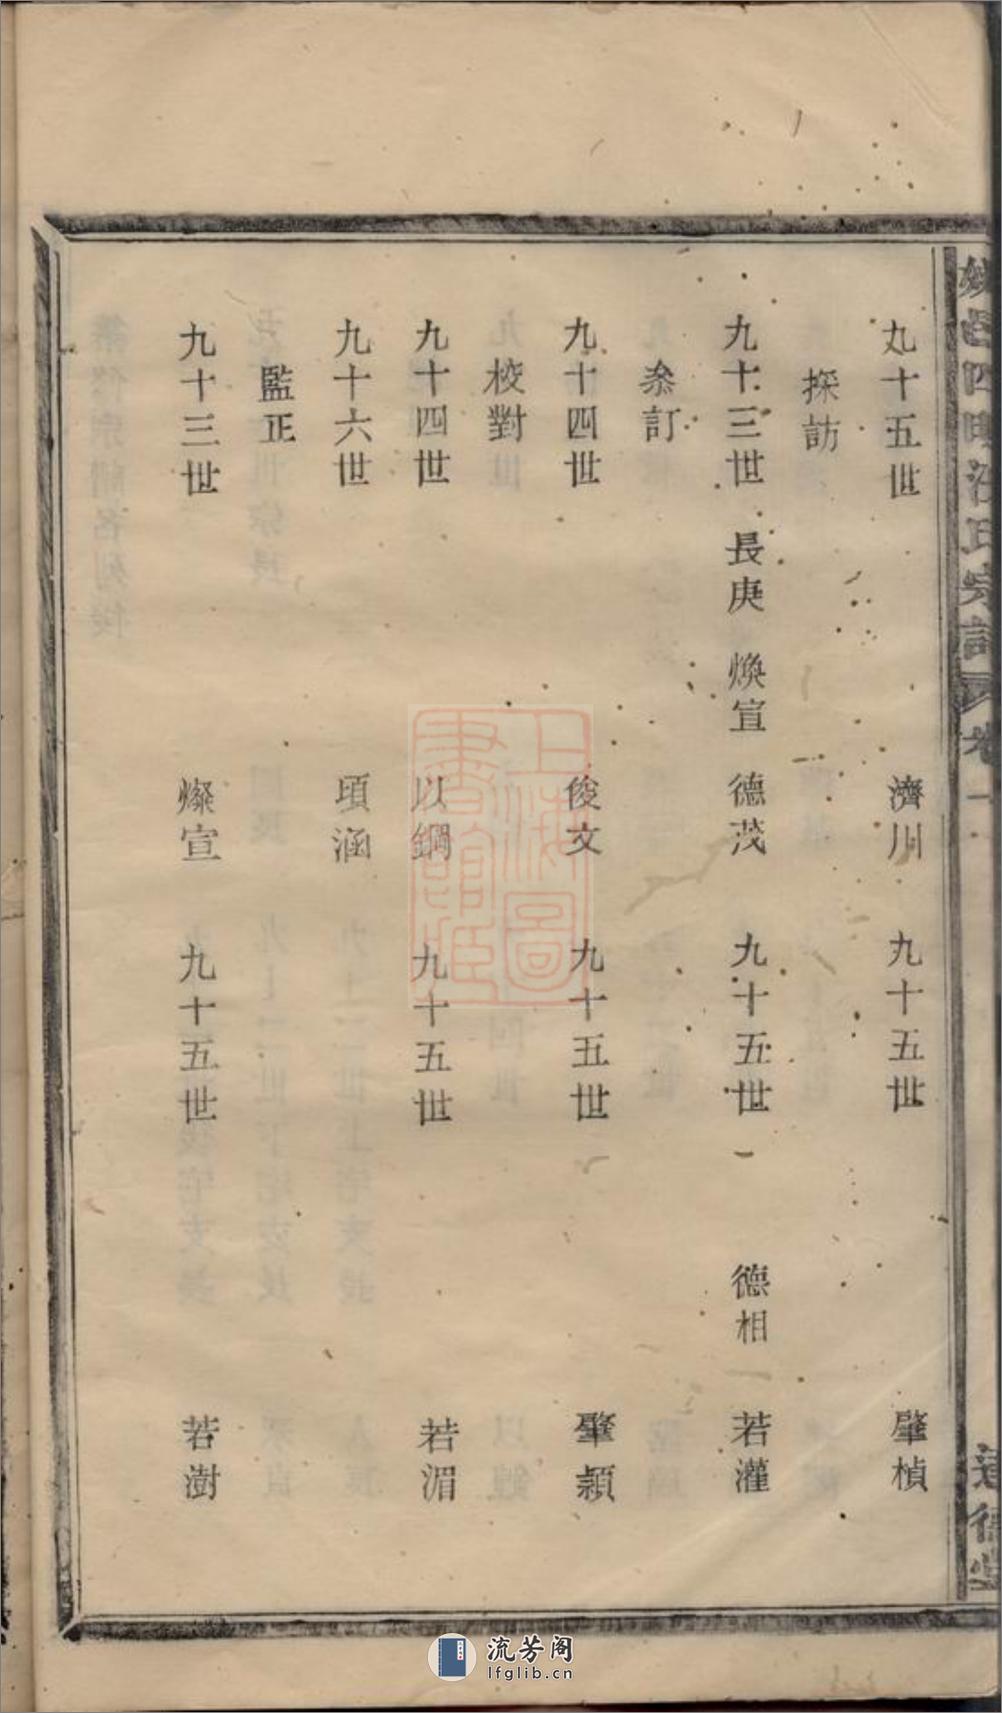 九十五世 濟川 九十五世 肇楨
採訪
九十三世 長庚 煥宣 德茂 九十五世 德相 若灌
叅訂
九十四世 俊文 九十五世 肇穎
校對
九十四世 以鋼 九十五世 若湄
九十六世 頃涵
監正
九十三世 燦宣 九十五世 若澍
四明 氏宗譜 卷一
上海圖書館藏
流芳阁
lfglib.cn